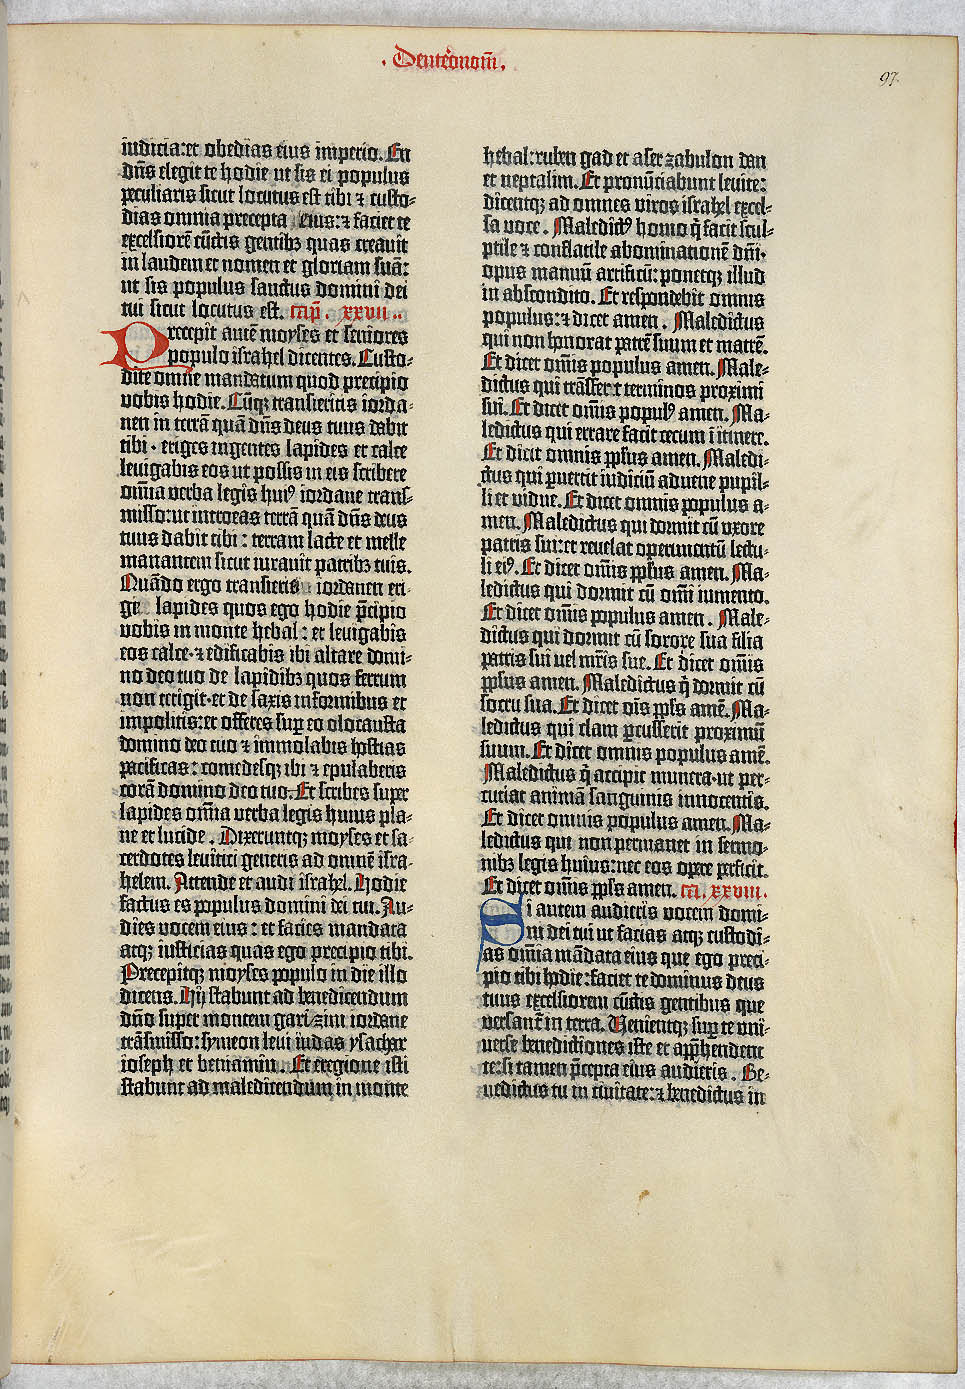 . Deuteronom̄.
97
iudicia: et obedias eius imperio. En
dn̄s elegit te hodie ut sis ei populus
peculiaris sicut locutus est tibi ⁊ custo-
dias omnia precepta eius: ⁊ faciet te
excelsiorē cūctis gentibꝫ quas creavit
in laudem et nomen et gloriam suā:
ut sis populus sanctus domini dei
tui sicut locutus est. cap̄. xxvii..
Precepit autē moyses et seniores
populo israhel dicentes. Custo-
dite omne mandatum quod precipio
vobis hodie. Cūqꝫ transieritis iorda-
nen in terrā quā dn̄s deus tuus dabit
tibi · eriges ingentes lapides et calce
levigabis eos ut possis in eis scribere
om̄ia verba legis huiꝰ iordane trans-
misso: ut introeas terrā quā dn̄s deus
tuus dabit tibi: terram lacte et melle
manantem sicut iuravit patribꝫ tuis.
Quādo ergo transieris iordanen eri-
ge lapides quos ego hodie p̄cipio
vobis in monte hebal: et levigabis
eos calce · ⁊ edificabis ibi altare domi-
no deo tuo de lapidibꝫ quos ferrum
non tetigit · et de saxis informibus et
impolitis: et offeres sup̱ eo olocausta
domino deo tuo ⁊ immolabis hostias
pacificas: comedesqꝫ ibi ⁊ epulaberis
corā domino deo tuo. Et scribes super
lapides om̄ia verba legis huius pla-
ne et lucide. Dixeruntqꝫ moyses et sa-
cerdotes levitici generis ad omnē isra-
helem. Attende et audi israhel. Hodie
factus es populus domini dei tui. Au-
dies vocem eius: et facies mandata
atqꝫ iusticias quas ego precipio tibi.
Precepitqꝫ moyses populo in die illo
dicens. Hij stabunt ad benedicendum
dn̄o super montem garizim iordane
trāsmisso: symeon levi iudas ysachar
ioseph et beniamin. Et eregione isti
stabunt ad maledicendum in monte
hebal: ruben gad et aser zabulon dan
et neptalim. Et pronūciabunt levite:
dicentqꝫ ad omnes viros israhel excel-
sa voce. Maledictꝰ homo q̄ facit scul-
ptile ⁊ conflatile abominationē dn̄i ·
opus manuū artificū: ponetqꝫ illud
in abscondito. Et respondebit omnis
populus: ⁊ dicet amen. Maledictus
qui non honorat patrē suum et matrē.
Et dicet om̄is populus amen. Male-
dictus qui trāsfert terminos proximi
sui. Et dicet om̄is populꝰ amen. Ma-
ledictus qui errare facit cecum ī itinere.
Et dicit omnis pp̄lus amen. Maledi-
ctus qui p̱vertit iudiciū advene pupil-
li et vidue. Et dicet omnis populus a-
men. Maledictus qui dormit cū uxore
patris sui: et revelat operimentū lectu-
li eiꝰ. Et dicet om̄is pp̄lus amen. Ma-
ledictus qui dormit cū om̄i iumento.
Et dicet om̄is populus amen. Male-
dictus qui dormit cū sorore sua filia
patris sui vel mr̄is sue. Et dicet om̄is
pp̄lus amen. Maledictus q̄ dormit cū
socru sua. Et dicet oīs pp̄ls amē. Ma-
ledictus qui clam p̱cusserit proximū
suum. Et dicet omnis populus amē.
Maledictus q̄ accipit munera · ut per-
cutiat animā sanguinis innocentis.
Et dicet omnis populus amen. Ma-
ledictus qui non permanet in sermo-
nibꝫ legis huius: nec eos opere perficit.
Et dicet om̄is pp̄ls amen. ca. xxviii.
Si autem audieris vocem domi-
ni dei tui ut facias atqꝫ custodi-
as om̄ia mādata eius que ego preci-
pio tibi hodie: faciet te dominus deus
tuus excelsiorem cūctis gentibus que
versant̄ in terra. Venientqꝫ sup̱ te uni-
verse benedictiones iste et app̄hendent
te: si tamen p̄cepta eius audieris. Be-
nedictus tu in civitate: ⁊ benedictus in